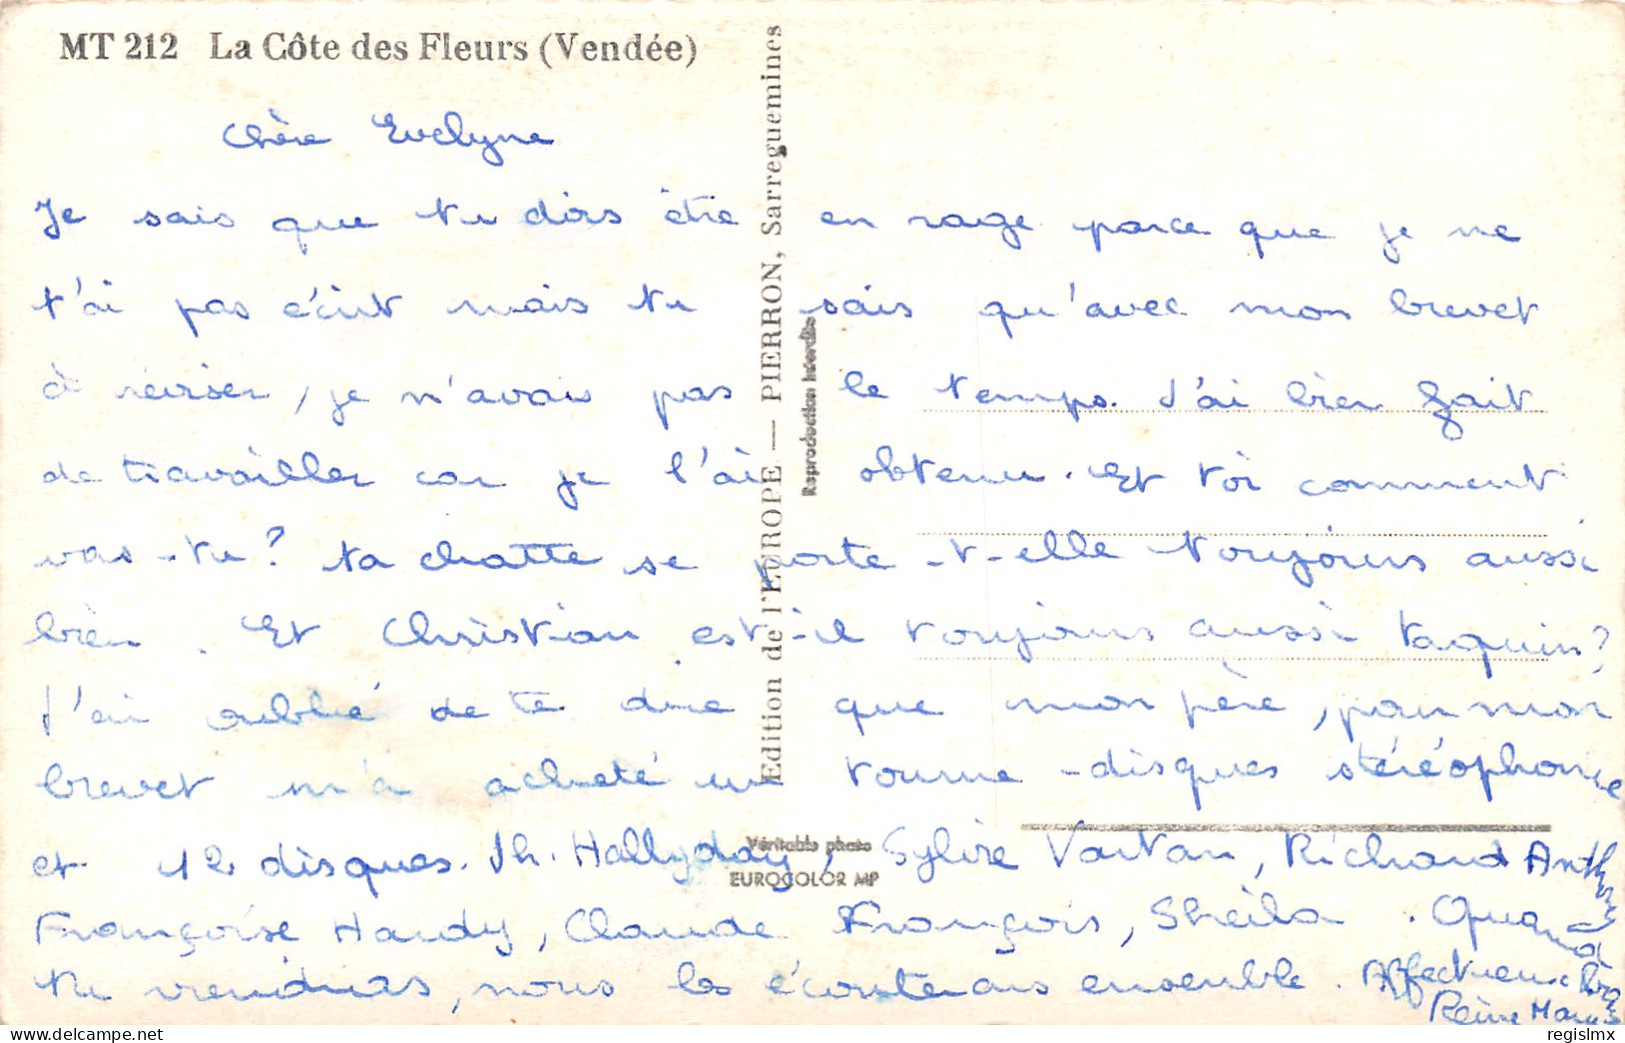 MT 212 La Côte des Fleurs (Vendée)
Chère Evelyne
Je sais que tu dois être en rage parce que je ne
t'ai pas écrit mais tu sais qu'avec mon brevet
à réviser, je n'avais pas le temps. J'ai bien fait
de travailler car je l'ai obtenu. Et toi comment
vas-tu? ta chatte se porte-t-elle toujours aussi
bien. Et Christian est-il toujours aussi taquin?
J'ai oublié de te dire que mon père, pour mon
brevet m'a acheté un tourne-disques stéréophonie
et 12 disques. Jh. Hallyday, Sylvie Vartan, Richard Anthony
Françoise Hardy, Claude François, Sheila. Quand
tu viendras, nous les écouterons ensemble. Affectueux
Reine Marys
Edition de l'EUROPE — PIERRON, Sarreguemines
Reproduction interdite
Véritable photo
EUROCOLOR MP
regislmx